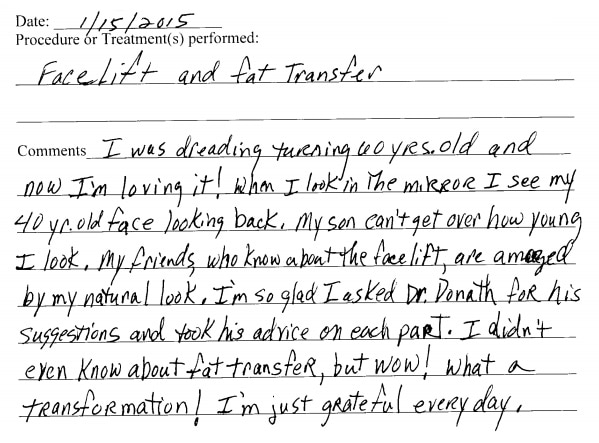 Date: 1/15/2015
Procedure or Treatment(s) performed:
Facelift and fat Transfer
Comments I was dreading turning 60 yrs. old and
now I'm loving it! When I look in the mirror I see my
40 yr. old face looking back. My son can't get over how young
I look. My friends, who know about the facelift, are amazed
by my natural look. I'm so glad I asked Dr. Donath for his
suggestions and took his advice on each part. I didn't
even know about fat transfer, but wow! What a
transformation! I'm just grateful every day.